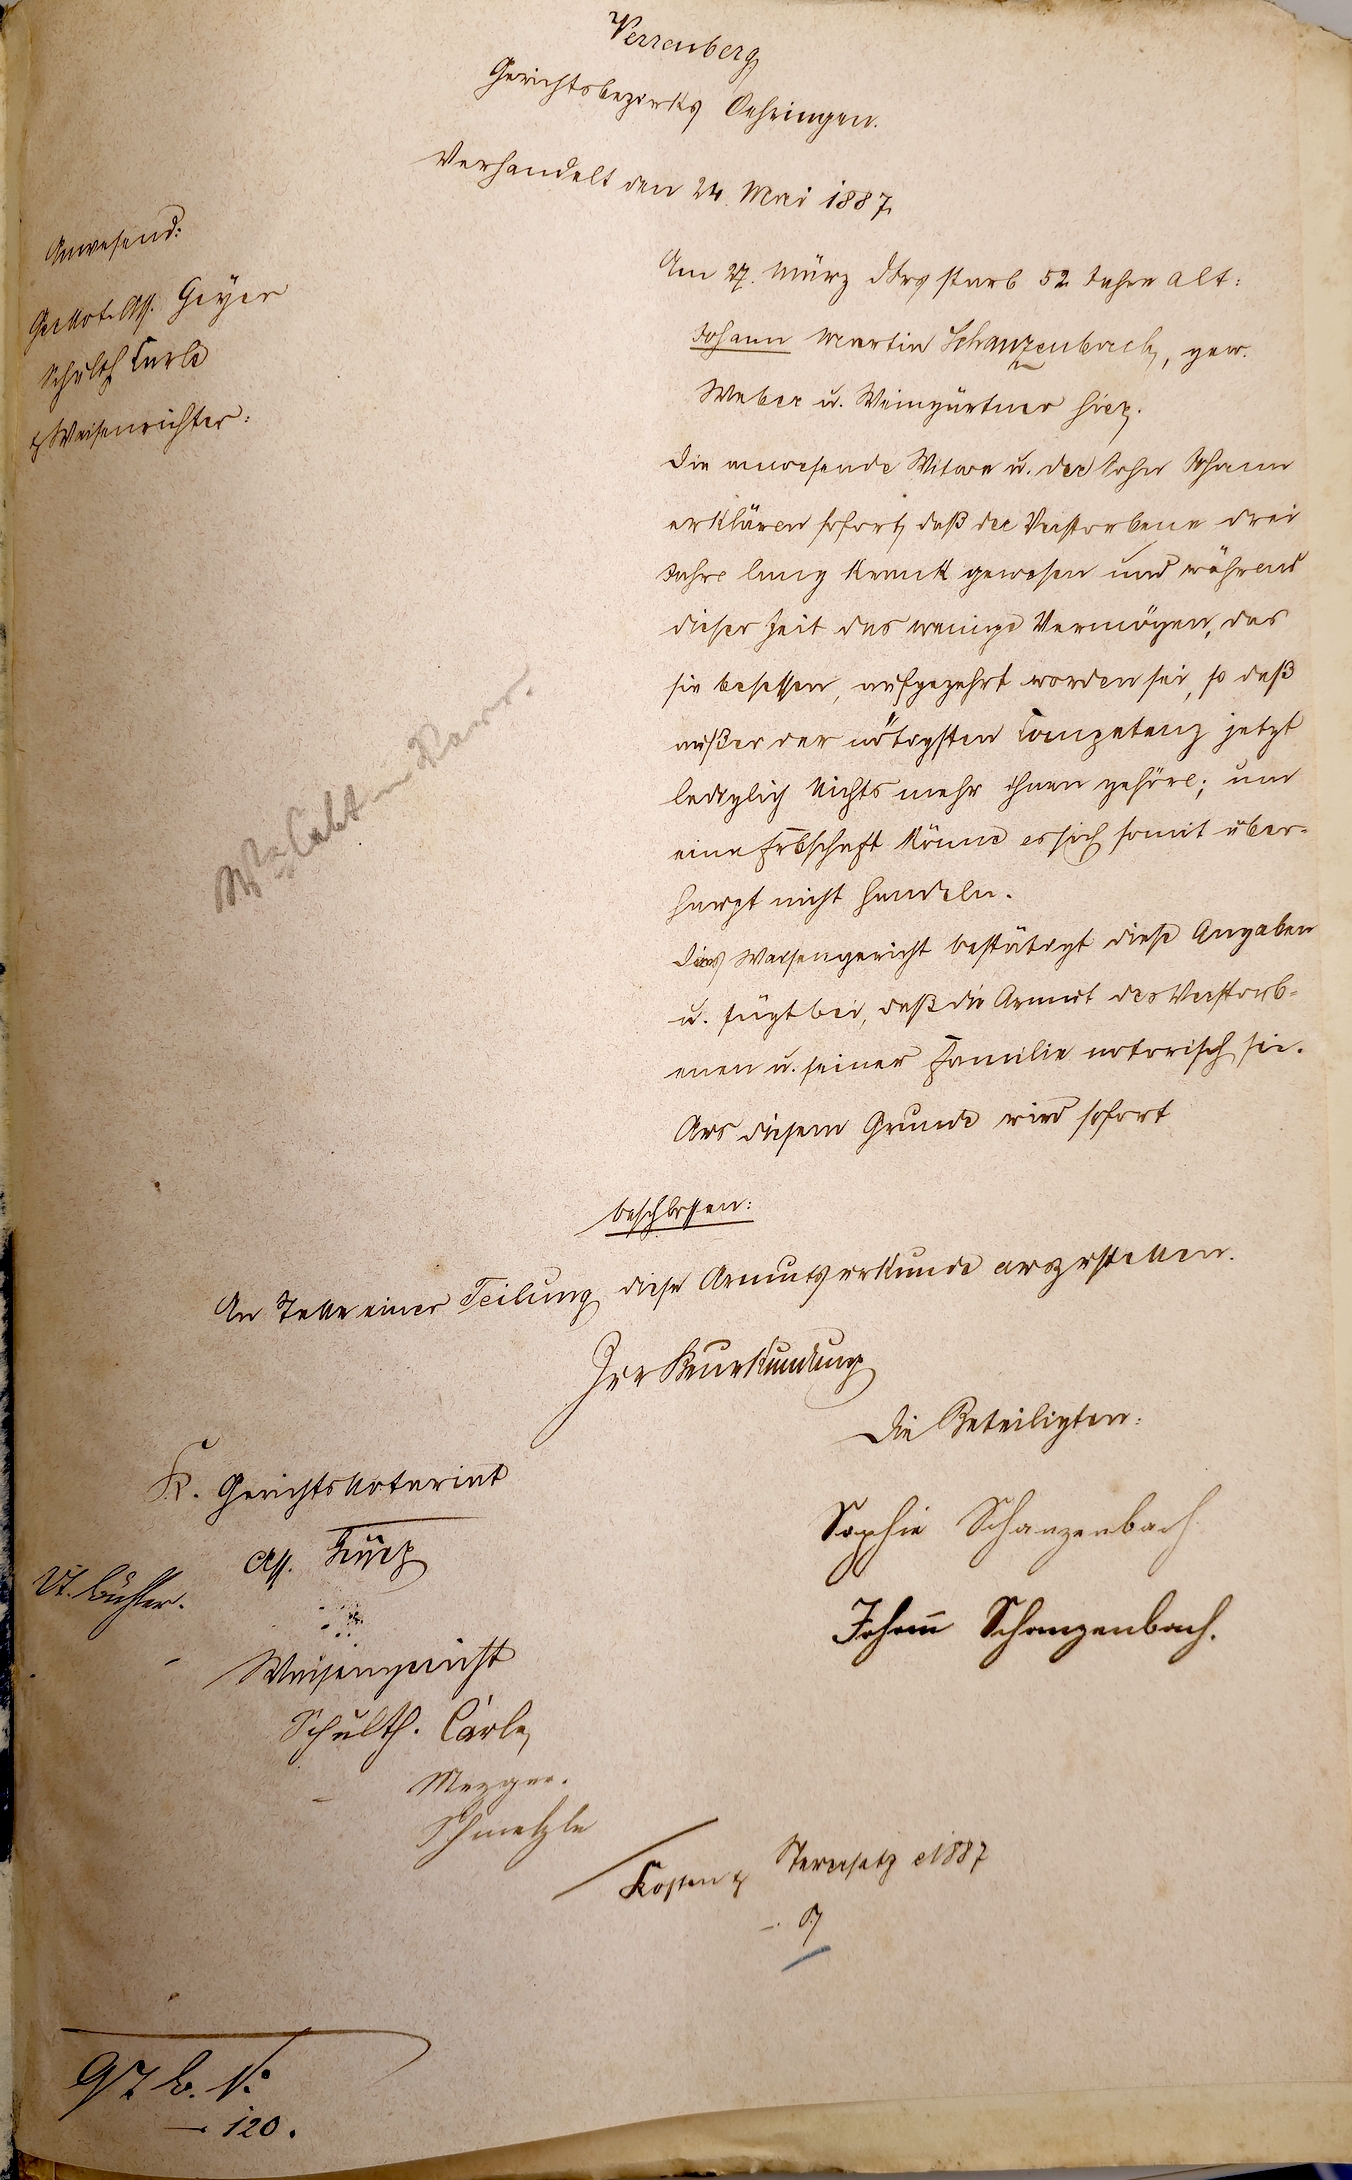 Verrenberg
Gerichtsbezirks Oehringen.
Verhandelt den 24. Mai 1887.
Anwesend:
Ger. Not. Ass. Geyer
Schulth. Carle
& Waisenrichter:
Am 27. März d. Irs starb 52 Jahre alt:
Johann Martin Schanzenbach, gew.
Weber u. Weingärtner hier.
Die anwesende Witwe u. der Sohn Johann
erklären sofort, daß der Verstorbene drei
Jahre lang krank gewesen und während
dieser Zeit das wenige Vermögen, das
sie besessen, aufgezehrt worden sei, so daß
außer der nötigsten Competenz jetzt
lediglich Nichts mehr ihnen gehöre; um
eine Erbschaft könne es sich somit über-
haupt nicht handeln.
Das Waisengericht bestätigt diese Angaben
u. fügt bei, daß die Armut des Verstorb-
enen u. seiner Familie notorisch sei.
Aus diesem Grunde wird sofort
beschlossen:
An Stelle einer Teilung diese Armutsurkunde auszustellen.
Zur Beurkundung
Die Beteiligten:
K. Gerichtsnotariat
Ass.
Sophie Schanzenbach
Johann Schanzenbach.
Waisengericht
Schulth. Carle,
Mezger.
Schmelzle
Kosten & 1887
97 b. N:
120.